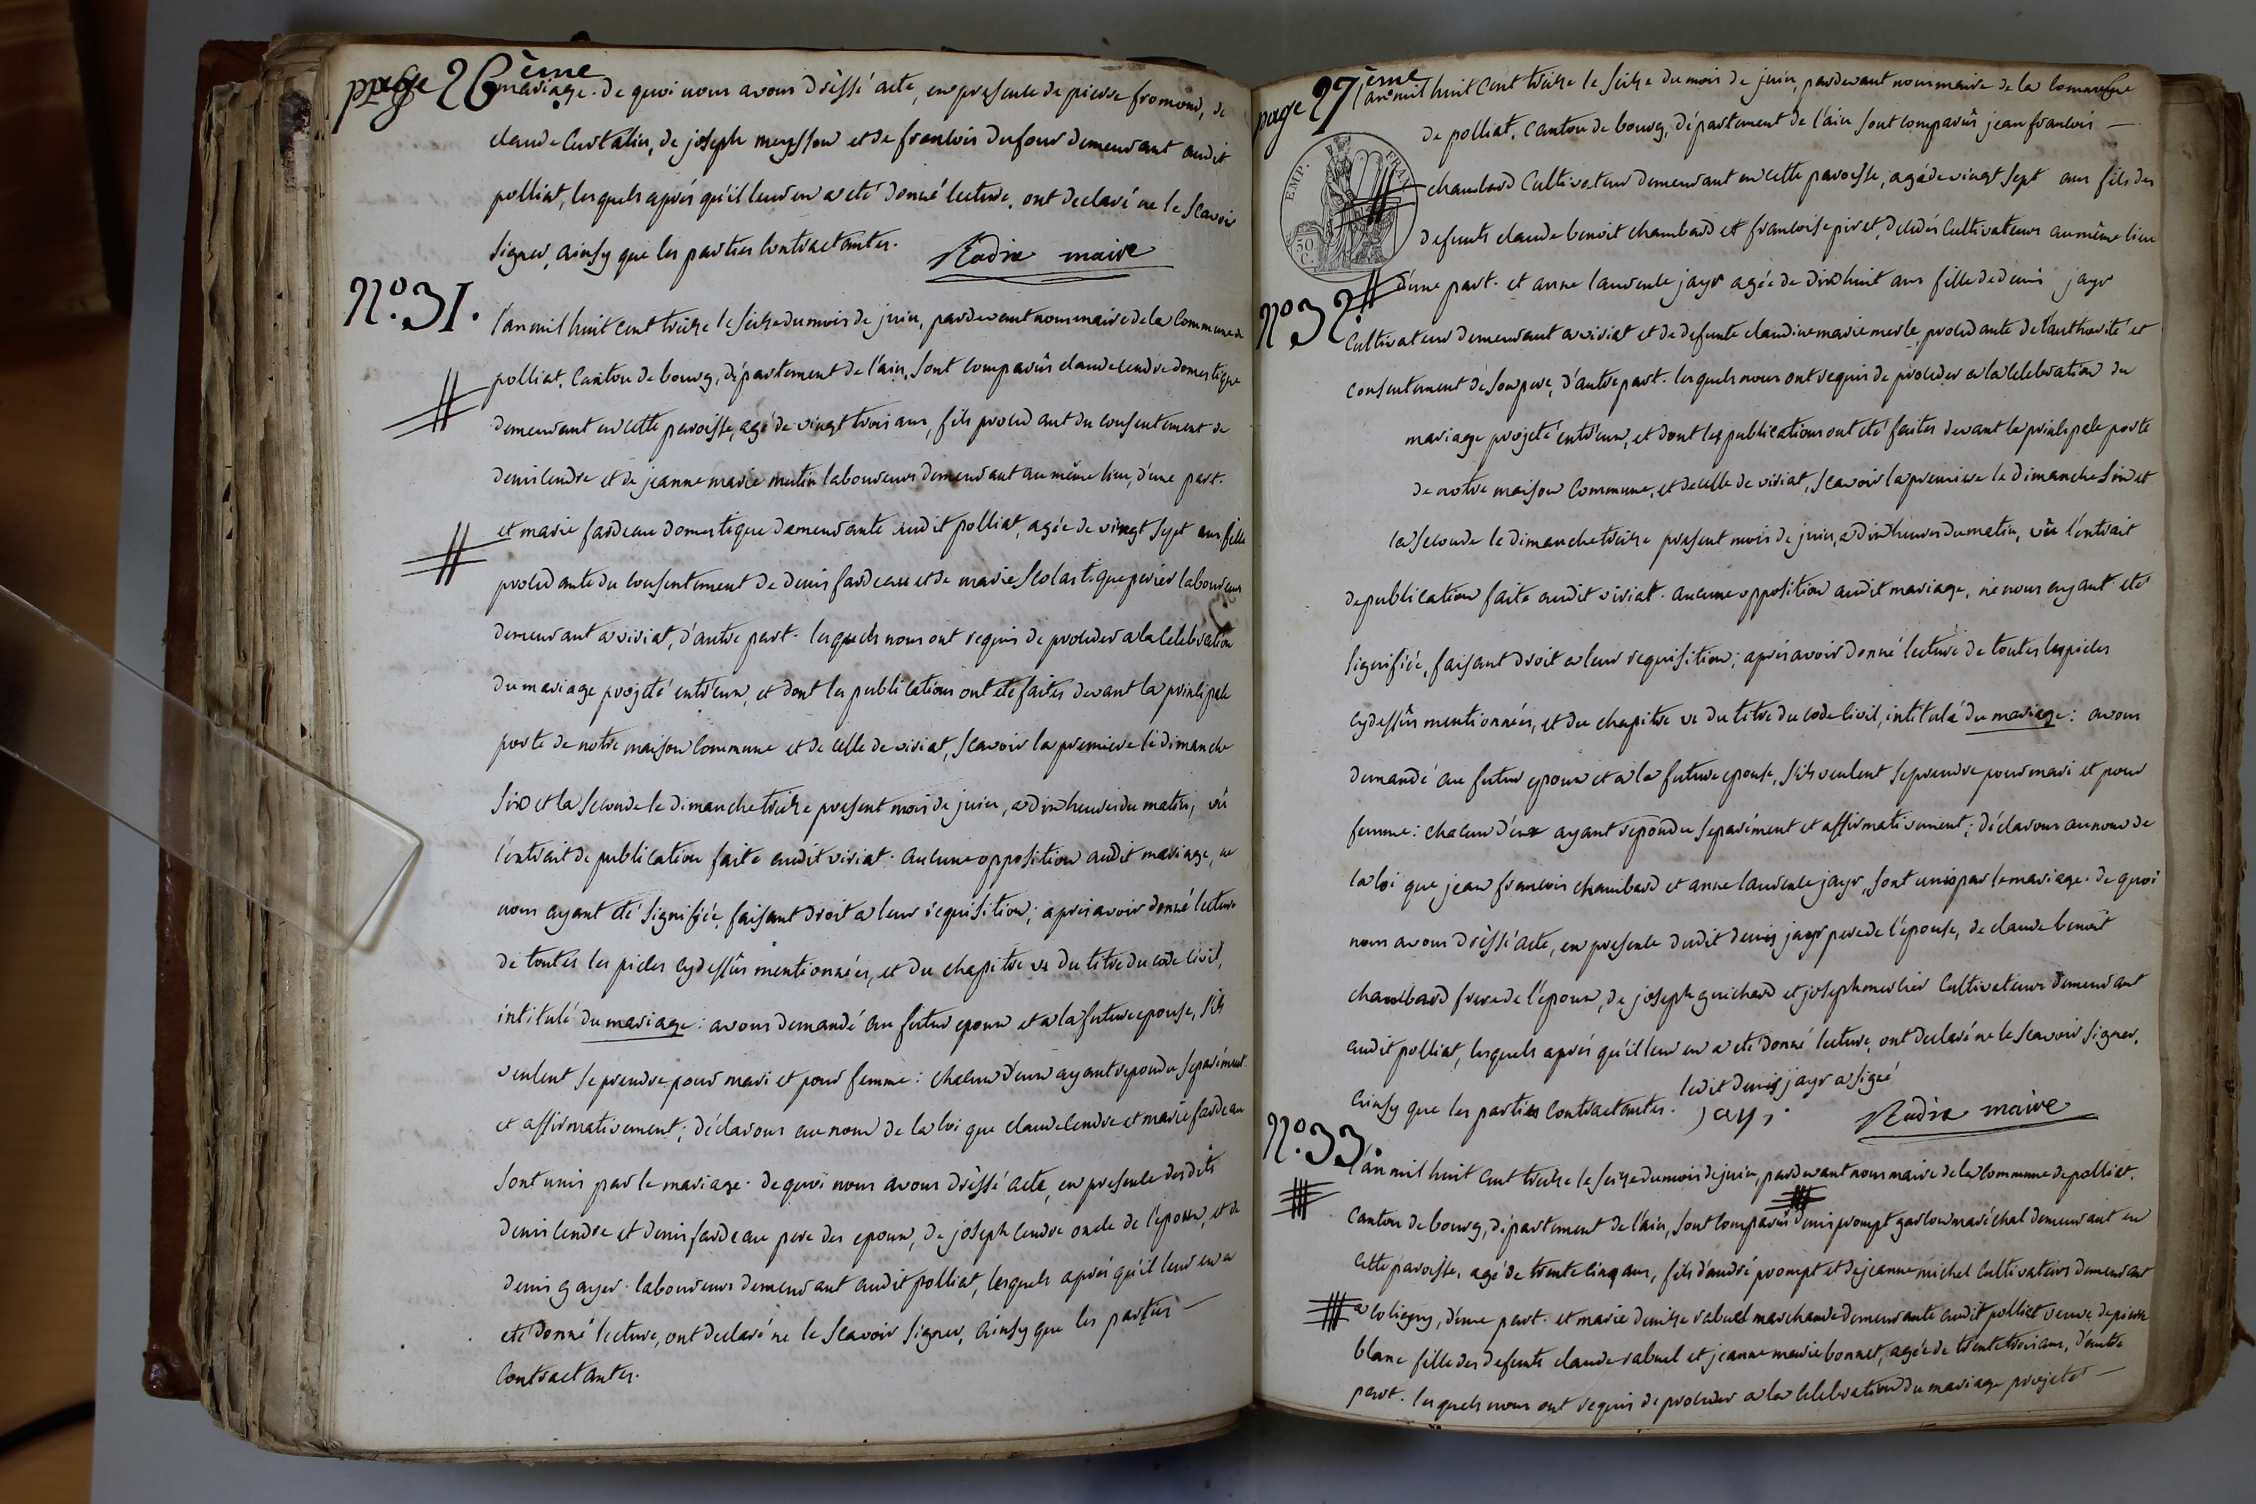 page 26ème
mariage. de quoi nous avons dréssé acte, en presence de pierre fromond, de
claude Curtalin, de joseph meysson et de francois dufour demeurant audit
polliat, lesquels aprés qu'il leur en a eté donné lecture, ont declaré ne le scavoir
signer, ainsy que les parties contractantes. maire
N.º 31.
l'an mil huit cent treize le seize du mois de juin, pardevant nous maire de la Commune de
polliat, Canton de bourg, département de l'ain, sont comparûs claude cendre domestique
demeurant en cette paroisse, agé de vingt trois ans, fils procedant du consentement de
denis cendre et de jeanne marie mutin laboureurs demeurant au même lieu, d'une part.
et marie fardeau domestique demeurante audit polliat, agée de vingt sept ans fille
procedante du consentement de denis fardeau et de marie scolastique perier laboureurs
demeurant a viriat, d'autre part. lesquels nous ont requis de proceder a la celebration
du mariage projeté entr'eux, et dont les publications ont eté faites devant la principale
porte de notre maison Commune et de celle de viriat, scavoir la premiere le dimanche
six et la seconde le dimanche treize present mois de juin, a dix heures du matin, vû
l'extrait de publication faite audit viriat. aucune opposition audit mariage, ne
nous ayant eté signifiée, faisant droit a leur requisition; aprés avoir donné lecture
de toutes les pieces cy dessûs mentionnées, et du chapitre vi du titre du code civil,
intitulé du mariage: avons demandé au futur epoux et a la future epouse, s'ils
veulent se prendre pour mari et pour femme: chacun d'eux ayant repondu separément
et affirmativement; déclarons au nom de la loi que claude cendre et marie fardeau
sont unis par le mariage. de quoi nous avons dréssé acte, en presence desdits
denis cendre et denis fardeau pere des epoux, de joseph cendre oncle de l'epoux, et de
denis gayer. laboureurs demeurant audit polliat, lesquels aprés qu'il leur en a
eté donné lecture, ont declaré ne le scavoir signer, ainsy que les parties
contractantes.
page 27ème
l'an mil huit cent treize le seize du mois de juin, pardevant nous maire de la commune
de polliat, canton de bourg, département de l'ain sont comparûs jean francois
EMP. FRAN.
50 C.
chambard Cultivateur demeurant en cette paroisse, agé de vingt sept ans fils des
defunts claude benoit chambard et francoise piret, decedés Cultivateurs au même lieu
d'une part. et anne laurence jayr agée de dix huit ans fille de denis jayr
Nº 32.
Cultivateur demeurant a viriat et de defunte claudine marie merle, procedante de l'authorité et
consentement de son pere, d'autre part. lesquels nous ont requis de proceder a la celebration du
mariage projeté entr'eux, et dont les publications ont eté faites devant la principale porte
de notre maison Commune, et de celle de viriat, scavoir la premiere le dimanche six et
la seconde le dimanche treize present mois de juin, a dix heures du matin, vû l'extrait
de publication faite audit viriat. aucune opposition audit mariage, ne nous ayant eté
signifiée, faisant droit a leur requisition; aprés avoir donné lecture de toutes les pieces
cy dessûs mentionnées, et du chapitre vi du titre du code civil, intitulé du mariage: avons
demandé au futur epoux et a la future epouse, s'ils veulent se prendre pour mari et pour
femme: chacun d'eux ayant repondu separément et affirmativement; déclarons au nom de
la loi que jean francois chambard et anne laurence jayr, sont unis par le mariage. de quoi
nous avons dréssé acte, en presence dudit denis jayr pere de l'épouse, de claude benoit
chambard frere de l'epoux, de joseph guichard et joseph meslier Cultivateurs demeurant
audit polliat, lesquels aprés qu'il leur en a eté donné lecture, ont declaré ne le scavoir signer,
ainsy que les parties contractantes. ledit denis jayr a signé
jayr maire
Nº. 33.
l'an mil huit cent treize le seize du mois de juin, pardevant nous maire de la Commune de polliat,
Canton de bourg, département de l'ain, sont comparûs denis prompt garcon maréchal demeurant en
cette paroisse, agé de trente cinq ans, fils d'andré prompt et de jeanne michel Cultivateurs demeurant
a coligny, d'une part. et marie denise rabuel marchande demeurante audit polliat veuve de pierre
blanc fille des defunts claude rabuel et jeanne marie bonnet, agée de trente trois ans, d'autre
part. lesquels nous ont requis de proceder a la celebration du mariage projeté